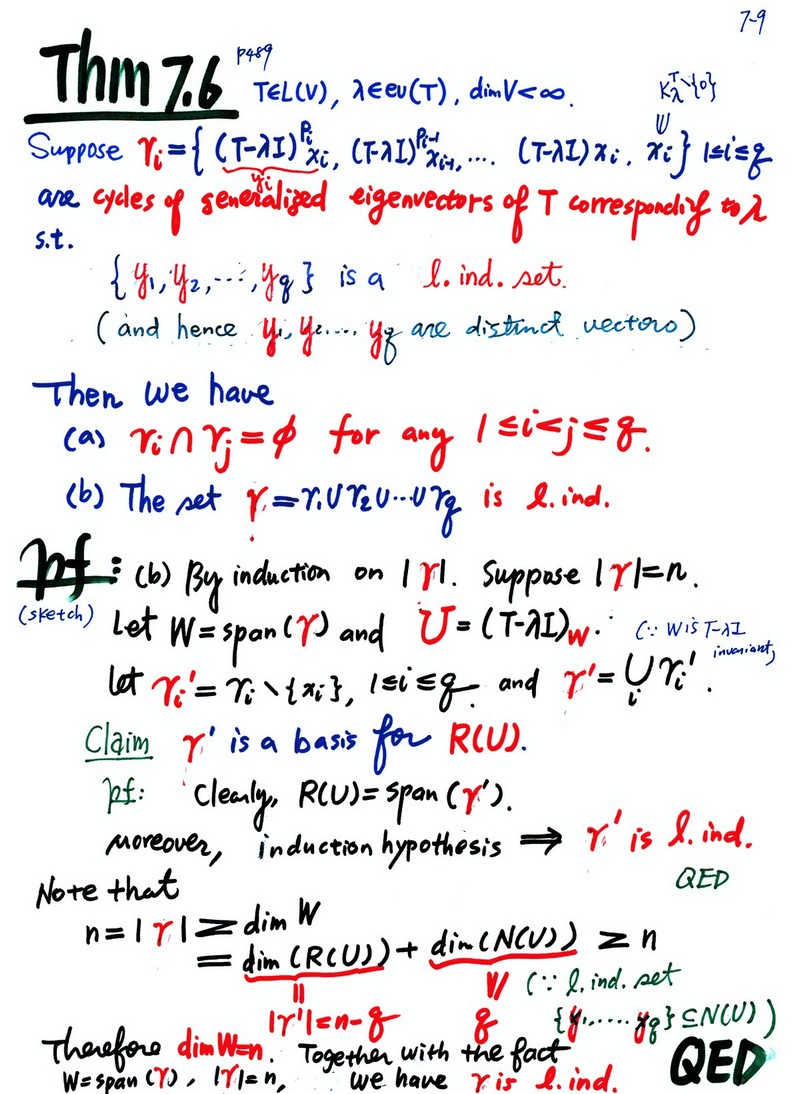 7-9
Thm 7.6 p489 T∈L(V), λ∈ev(T), dimV<∞. K_λ^T∖{0}
Suppose γ_i = { (T-λI)^{p_i} x_i, (T-λI)^{p_i-1} x_{i+1}, .... (T-λI)x_i, x_i } 1≤i≤q
y_i
are cycles of generalized eigenvectors of T corresponding to λ
s.t.
{ y_1, y_2, ..., y_q } is a l. ind. set.
(and hence y_1, y_2 .... y_q are distinct vectors)
Then we have
(a) γ_i ∩ γ_j = φ for any 1≤i<j≤q.
(b) The set γ = γ_1∪γ_2∪...∪γ_q is l. ind.
pf: (b) By induction on |γ|. Suppose |γ|=n.
(sketch) Let W = span(γ) and U = (T-λI)_W. (∵ W is T-λI
invariant)
let γ_i' = γ_i ∖ {x_i}, 1≤i≤q and γ' = ∪_i γ_i'.
Claim γ' is a basis for R(U).
pf: Clearly, R(U) = span(γ').
moreover, induction hypothesis ⟹ γ' is l. ind.
QED
Note that
n = |γ| ≥ dim W
= dim(R(U)) + dim(N(U)) ≥ n
|| V/ (∵ l. ind. set
|γ'| = n-q q {y_1, .... y_q} ⊆ N(U))
Therefore dim W=n. Together with the fact QED
W = span(γ), |γ|=n, we have γ is l. ind.